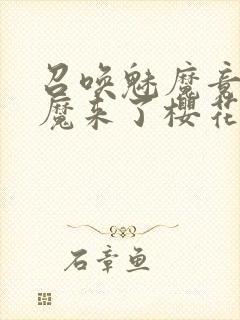 召唤魅魔竟
魔来了樱花
石章鱼